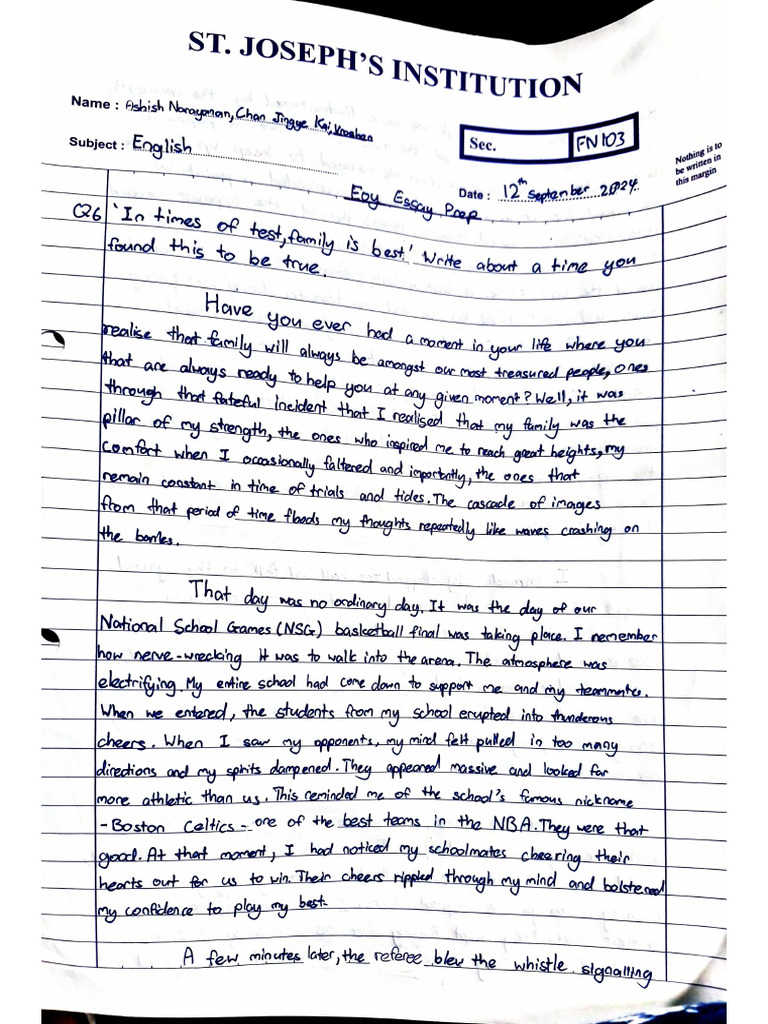 ST. JOSEPH'S INSTITUTION
Name : Ashish Narayanan, Chan Jingye Kai,
Subject : English
Sec. FN103
Nothing is to
be written in
this margin
Date : 12th September 2024.
Eoy Essay Prep
Q26 'In times of test, family is best.' Write about a time you
found this to be true.
Have you ever had a moment in your life where you
realise that family will always be amongst our most treasured people, ones
that are always ready to help you at any given moment? Well, it was
through that fateful incident that I realised that my family was the
pillar of my strength, the ones who inspired me to reach great heights, my
comfort when I occasionally faltered and importantly, the ones that
remain constant in time of trials and tides. The cascade of images
from that period of time floods my thoughts repeatedly like waves crashing on
the
That day was no ordinary day. It was the day of our
National School Games (NSG) basketball final was taking place. I remember
how nerve-wrecking it was to walk into the arena. The atmosphere was
electrifying. My entire school had come down to support me and my teammates.
When we entered, the students from my school erupted into thunderous
cheers. When I saw my opponents, my mind felt pulled in too many
directions and my spirits dampened. They appeared massive and looked far
more athletic than us. This reminded me of the school's famous nickname
- Boston Celtics - one of the best teams in the NBA. They were that
good. At that moment, I had noticed my schoolmates cheering their
hearts out for us to win. Their cheers rippled through my mind and bolstered
my confidence to play my best.
A few minutes later, the referee blew the whistle signalling